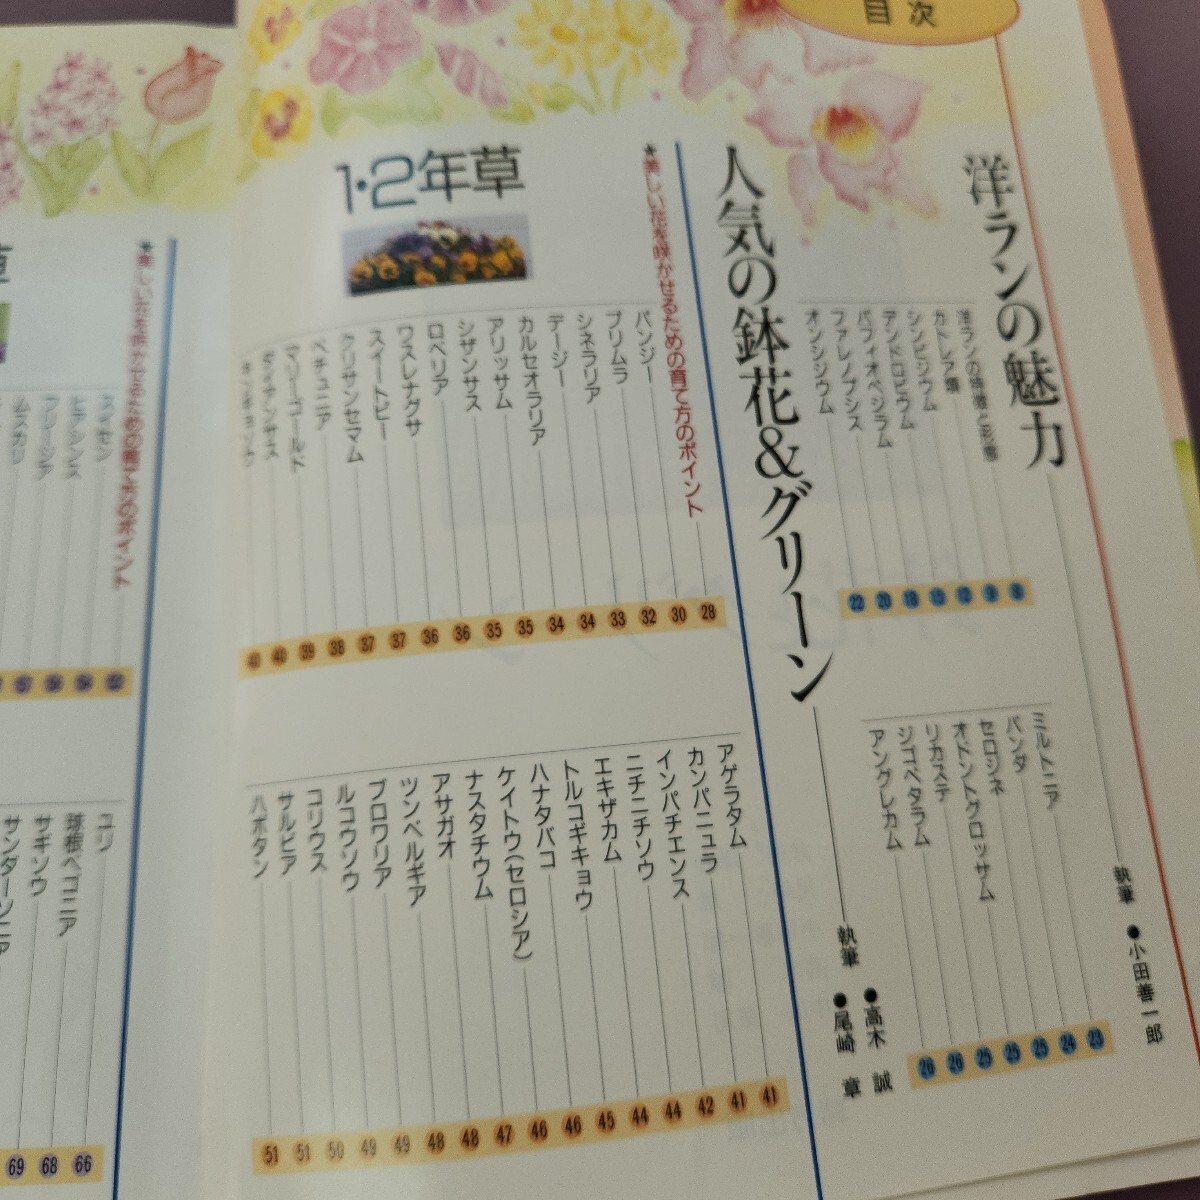 目次
洋ランの魅力
執筆 ●小田善一郎
洋ランの特徴と形態 8
カトレア類 9
シンビジウム 12
デンドロビウム
パフィオペジラム 18
ファレノプシス 20
オンシジウム 22
ミルトニア 23
バンダ 24
セロジネ 25
オドントグロッサム 25
リカステ 25
ジゴペタラム 26
アングレカム 26
人気の鉢花&グリーン
執筆 ●高木 誠
●尾崎 章
1・2年草
★美しい花を咲かせるための育て方のポイント 28
パンジー 30
プリムラ 32
シネラリア 33
デージー 34
カルセオラリア 34
アリッサム 35
シザンサス 35
ロベリア 36
ワスレナグサ 36
スイートピー 37
クリサンセマム 37
ペチュニア 38
マリーゴールド 39
ダイアンサス 40
キンギョソウ 40
アゲラタム 41
カンパニュラ 41
インパチエンス 42
ニチニチソウ 44
エキザカム 44
トルコギキョウ 45
ハナタバコ 46
ケイトウ(セロシア) 46
ナスタチウム 47
アサガオ 48
ツンベルギア 48
ブロワリア 49
ルコウソウ 49
コリウス 50
サルビア 51
ハボタン 51
草
★美しい花を咲かせるための育て方のポイント
スイセン
ヒアシンス
フリージア
ムスカリ
ユリ 66
球根ベゴニア 68
サギソウ 69
サンダーソニア